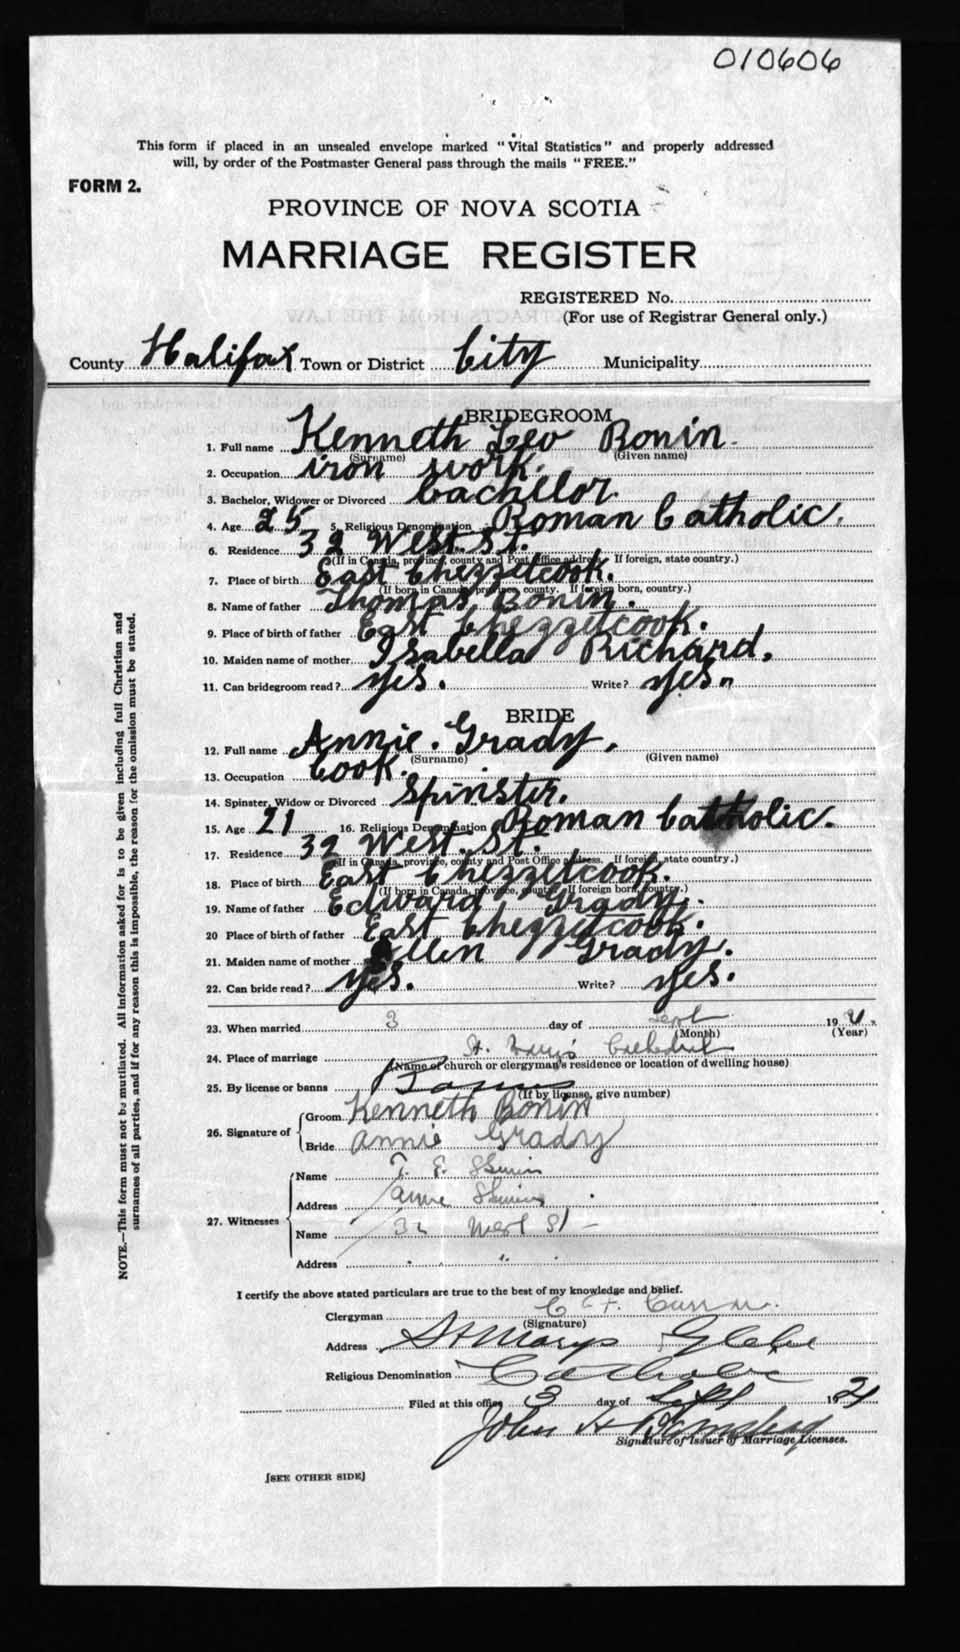 010606
This form if placed in an unsealed envelope marked "Vital Statistics" and properly addressed
will, by order of the Postmaster General pass through the mails "FREE."
FORM 2.
PROVINCE OF NOVA SCOTIA
MARRIAGE REGISTER
REGISTERED No.
(For use of Registrar General only.)
County Halifax Town or District City Municipality
BRIDEGROOM
1. Full name Kenneth Leo Bonin.
(Surname) (Given name)
2. Occupation iron work.
3. Bachelor, Widower or Divorced bachelor.
4. Age 25 5. Religious Denomination Roman Catholic.
6. Residence 32 West. St.
(If in Canada, province, county and Post Office address. If foreign, state country.)
7. Place of birth East Chezzetcook.
(If born in Canada, province, county. If foreign born, country.)
8. Name of father Thomas Bonin.
9. Place of birth of father East Chezzetcook.
10. Maiden name of mother Isabella Richard.
11. Can bridegroom read? yes. Write? yes.
BRIDE
12. Full name Annie. Grady.
(Surname) (Given name)
13. Occupation Cook.
14. Spinster, Widow or Divorced Spinster.
15. Age 21 16. Religious Denomination Roman Catholic.
17. Residence 32 West. St.
(If in Canada, province, county and Post Office address. If foreign, state country.)
18. Place of birth East Chezzetcook.
(If born in Canada, province, county. If foreign born, country.)
19. Name of father Edward Grady.
20 Place of birth of father East Chezzetcook.
21. Maiden name of mother Ellen Grady.
22. Can bride read? yes. Write? yes.
23. When married 3 day of Sept 19
(Month) (Year)
24. Place of marriage St. Mary's Cathedral
(Name of church or clergyman's residence or location of dwelling house)
25. By license or banns Banns
(If by license, give number)
26. Signature of Groom Kenneth Bonin
Bride annie Grady
27. Witnesses
Name T. E.
Address Anne
Name 32 West St
Address " "
I certify the above stated particulars are true to the best of my knowledge and belief.
Clergyman C. F. Curran.
(Signature)
Address St Marys Glebe
Religious Denomination Catholic
Filed at this office 3 day of Sept 1921
John H Barnstead
Signature of Issuer of Marriage Licenses.
[SEE OTHER SIDE]
NOTE.—This form must not be mutilated. All information asked for is to be given including full Christian and
surnames of all parties, and if for any reason this is impossible, the reason for the omission must be stated.